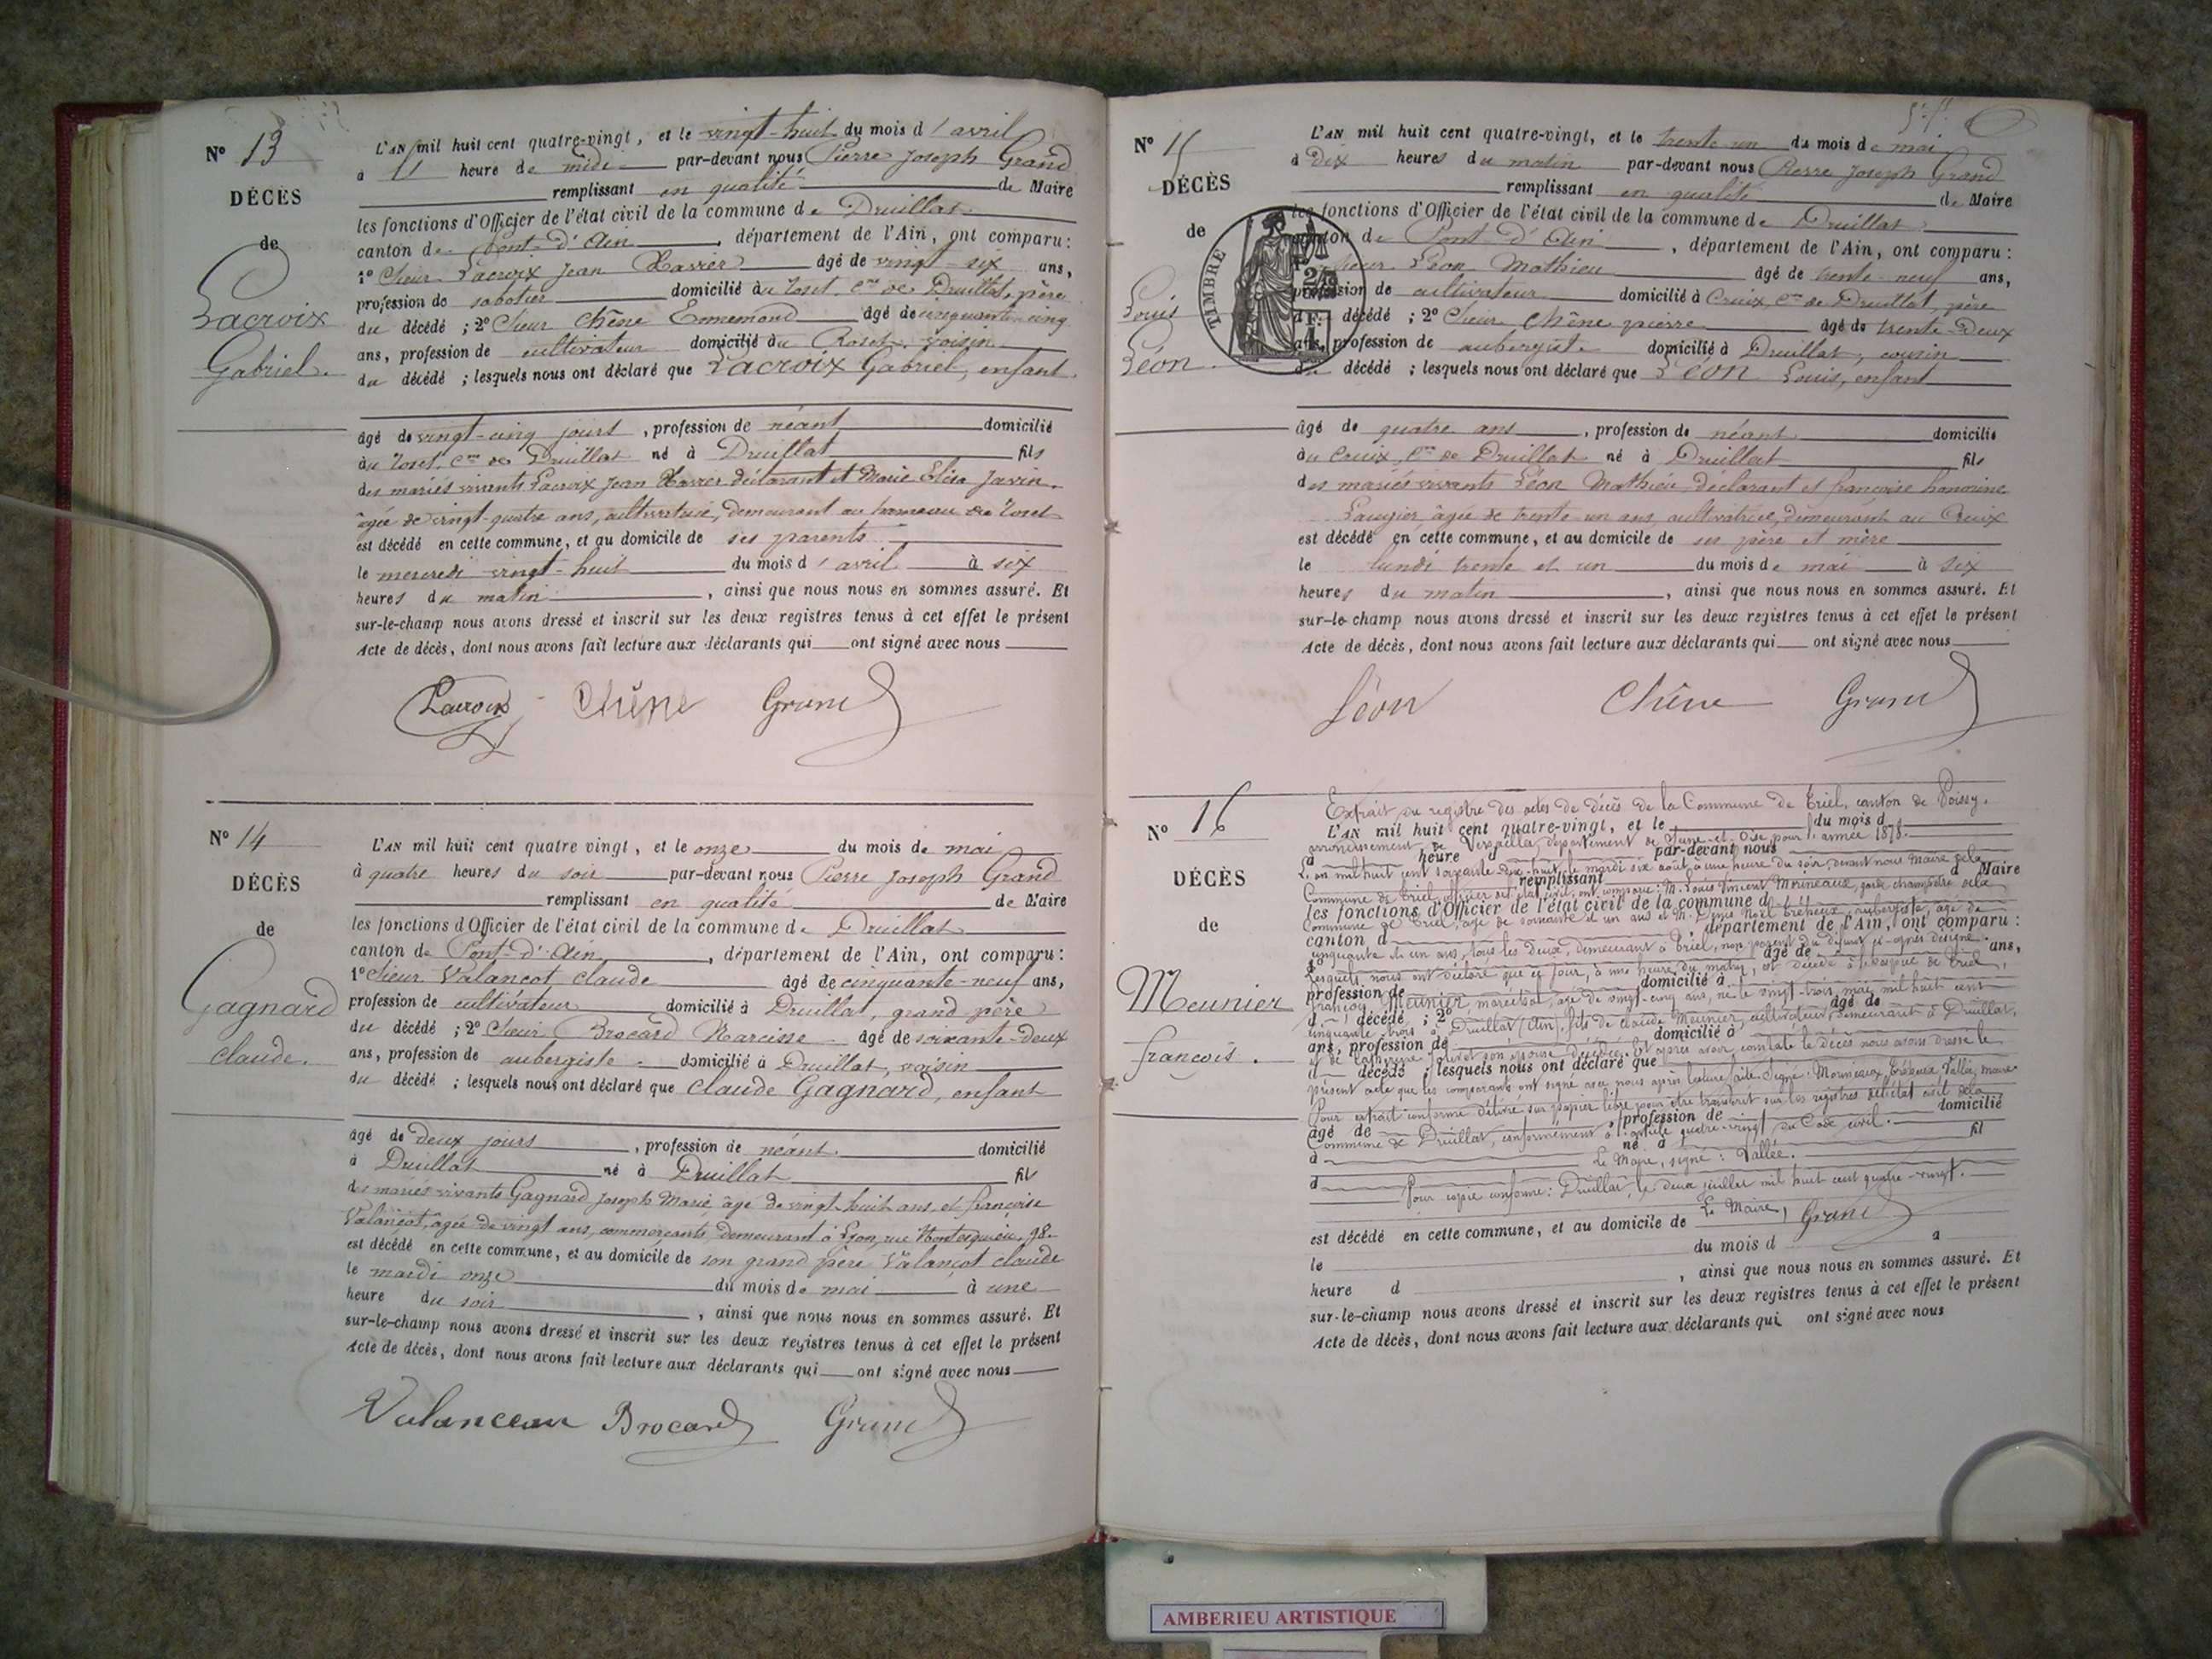 Nº 13
DÉCÈS
de
Lacroix
Gabriel.
L'AN mil huit cent quatre-vingt, et le vingt-huit du mois d'avril
à heure de midi par-devant nous Pierre Joseph Grand
remplissant en qualité de Maire
les fonctions d'Officier de l'état civil de la commune de Druillat
canton de Pont-d'Ain, département de l'Ain, ont comparu:
1º Sieur Lacroix Jean Xavier âgé de vingt-six ans,
profession de sabotier domicilié au Roset, Cne de Druillat, père
du décédé ; 2º Sieur Chêne Ennemond âgé de cinquante-cinq
ans, profession de cultivateur domicilié au Roset, voisin
du décédé ; lesquels nous ont déclaré que Lacroix Gabriel, enfant
âgé de vingt-cinq jours, profession de néant domicilié
au Roset, Cne de Druillat né à Druillat fils
des mariés vivants Lacroix Jean Xavier déclarant et Marie Elisa Javin,
âgée de vingt-quatre ans, cultivatrice, demeurant au hameau du Roset
est décédé en cette commune, et au domicile de ses parents
le mercredi vingt-huit du mois d'avril à six
heures du matin, ainsi que nous nous en sommes assuré. Et
sur-le-champ nous avons dressé et inscrit sur les deux registres tenus à cet effet le présent
Acte de décès, dont nous avons fait lecture aux déclarants qui ont signé avec nous
Lacroix Chêne Grand
Nº 14
DÉCÈS
de
Gagnard
claude.
L'AN mil huit cent quatre vingt, et le onze du mois de mai
à quatre heures du soir par-devant nous Pierre Joseph Grand
remplissant en qualité de Maire
les fonctions d'Officier de l'état civil de la commune de Druillat
canton de Pont-d'Ain, département de l'Ain, ont comparu:
1º Sieur Valançot claude âgé de cinquante-neuf ans,
profession de cultivateur domicilié à Druillat, grand père
du décédé ; 2º Sieur Brocard Narcisse âgé de soixante-deux
ans, profession de aubergiste domicilié à Druillat, voisin
du décédé ; lesquels nous ont déclaré que Claude Gagnard, enfant
âgé de deux jours, profession de néant domicilié
à Druillat né à Druillat fils
des mariés vivants Gagnard Joseph Marie, âgé de vingt-huit ans, et françoise
Valançot, âgée de vingt ans, commerçants demeurant à Lyon, rue Montesquieu, 98.
est décédé en cette commune, et au domicile de son grand père Valançot claude
le mardi onze du mois de mai à une
heure du soir, ainsi que nous nous en sommes assuré. Et
sur-le-champ nous avons dressé et inscrit sur les deux registres tenus à cet effet le présent
Acte de décès, dont nous avons fait lecture aux déclarants qui ont signé avec nous
Valanceau Brocard Grand
Nº 15
DÉCÈS
de
Louis
Léon.
TIMBRE
L'AN mil huit cent quatre-vingt, et le trente un du mois de mai
à Dix heures du matin par-devant nous Pierre Joseph Grand
remplissant en qualité de Maire
les fonctions d'Officier de l'état civil de la commune de Druillat
canton de Pont-d'Ain, département de l'Ain, ont comparu:
1º Sieur Léon Mathieu âgé de trente-neuf ans,
profession de cultivateur domicilié à Cruix, Cne de Druillat, père
du décédé ; 2º Sieur Chêne pierre âgé de trente-deux
ans, profession de aubergiste domicilié à Druillat, cousin
du décédé ; lesquels nous ont déclaré que Léon Louis, enfant
âgé de quatre ans, profession de néant domicilié
au Cruix, Cne de Druillat né à Druillat fils
des mariés vivants Léon Mathieu déclarant et françoise honorine
Laugier, âgée de trente un ans, cultivatrice, demeurant au Cruix
est décédé en cette commune, et au domicile de ses père et mère
le lundi trente et un du mois de mai à six
heures du matin, ainsi que nous nous en sommes assuré. Et
sur-le-champ nous avons dressé et inscrit sur les deux registres tenus à cet effet le présent
Acte de décès, dont nous avons fait lecture aux déclarants qui ont signé avec nous
Léon Chêne Grand
Nº 16
DÉCÈS
de
Meunier
françois.
Extrait du registre des actes de décès de la Commune de Triel, canton de Poissy,
L'AN mil huit cent quatre-vingt, et le du mois d
arrondissement de Versailles, département de Seine-et-Oise, pour l'année 1878.
à heure d par-devant nous
L'an mil huit cent soixante dix-huit, le mardi six août à une heure du soir, devant nous Maire de la
remplissant d Maire
Commune de Triel, officier de l'état civil, ont comparu : M. Louis Vincent Morineaux, garde champêtre de la
les fonctions d'Officier de l'état civil de la commune d
Commune de Triel, âgé de soixante et un ans et M. Denis Noël Tréheux, aubergiste, âgé de
canton d, département de l'Ain, ont comparu :
cinquante et un ans, tous les deux demeurant à Triel, non parents du défunt ci-après désigné.
âgé de ans,
Lesquels nous ont déclaré que ce jour, à une heure du matin, est décédé à Triel,
profession de domicilié à
françois Meunier, maréchal, âgé de vingt-cinq ans, né le vingt-trois mai mil huit cent
d décédé ; 2º âgé de
cinquante trois à Druillat (Ain), fils de claude Meunier, cultivateur, demeurant à Druillat,
ans, profession de domicilié à
et de Catherine son épouse décédée. Et après avoir constaté le décès nous avons dressé le
d décédé ; lesquels nous ont déclaré que
présent acte que les comparants ont signé avec nous après lecture faite. Signé : Morineaux, Tréheux, Vallée, maire.
Pour extrait conforme délivré sur papier libre pour être transcrit sur les registres de l'état civil de la
âgé de, profession de domicilié
Commune de Druillat, conformément à l'article quatre-vingt du Code civil.
à né à fil
Le Maire, signé : Vallée.
d
Pour copie conforme : Druillat, le deux juillet mil huit cent quatre-vingt.
Le Maire, Grand
est décédé en cette commune, et au domicile de
le du mois d à
heure d, ainsi que nous nous en sommes assuré. Et
sur-le-champ nous avons dressé et inscrit sur les deux registres tenus à cet effet le présent
Acte de décès, dont nous avons fait lecture aux déclarants qui ont signé avec nous
AMBERIEU ARTISTIQUE